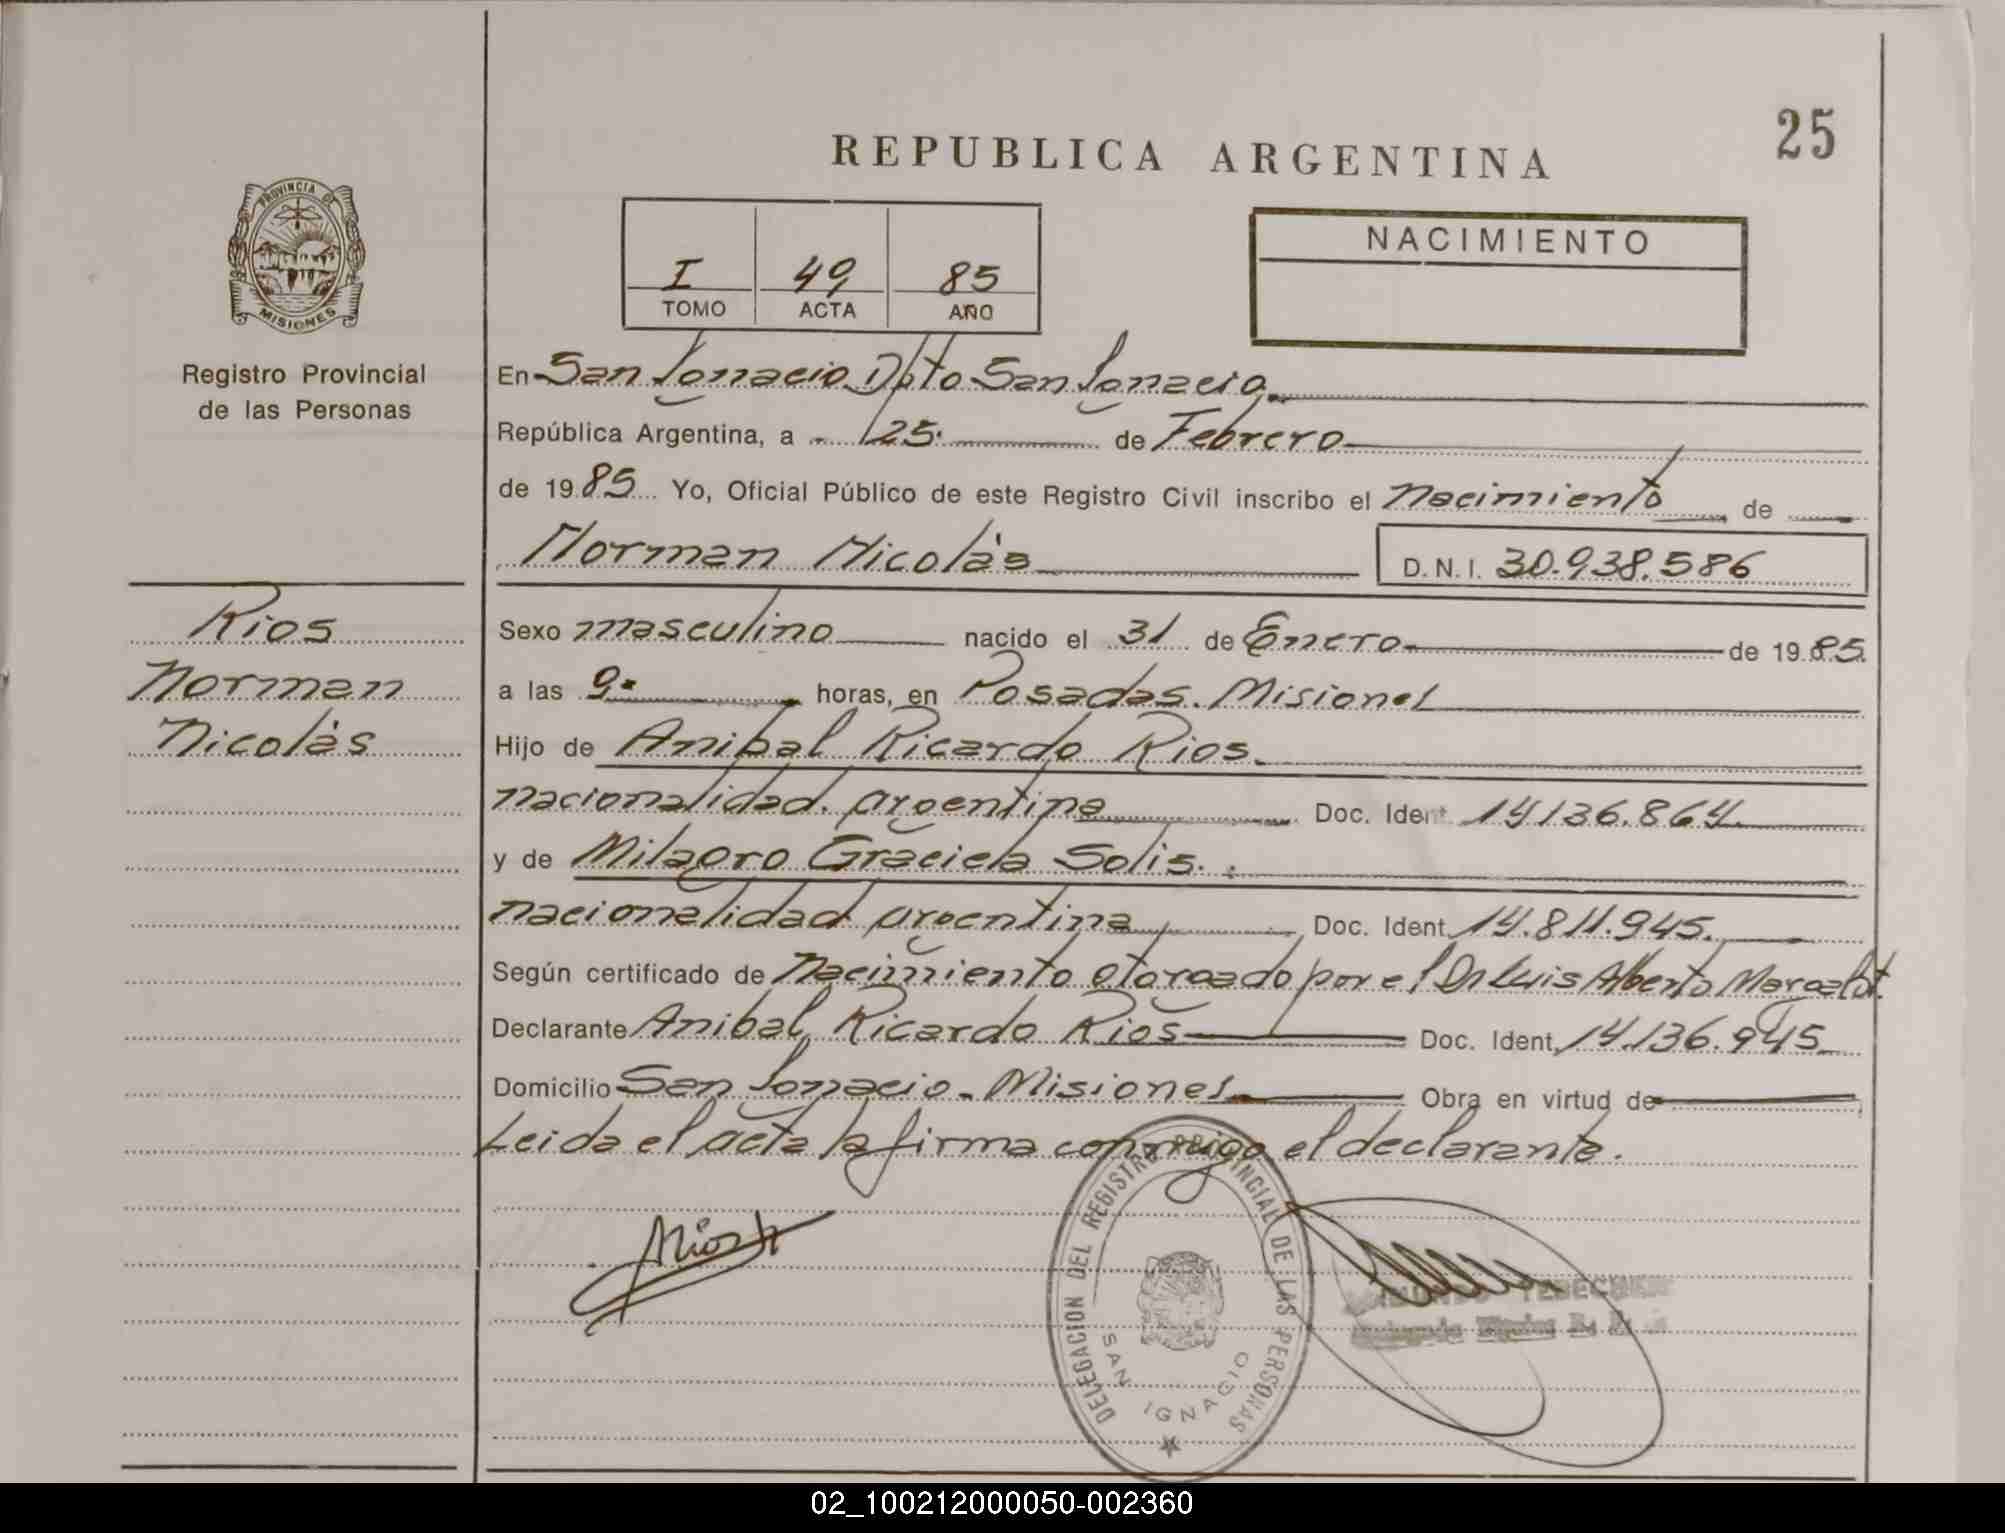 25
REPUBLICA ARGENTINA
PROVINCIA DE
MISIONES
Registro Provincial
de las Personas
I 49 85
TOMO ACTA AÑO
NACIMIENTO
En San Ignacio Dpto San Ignacio
República Argentina, a 25 de Febrero
de 1985 Yo, Oficial Público de este Registro Civil inscribo el Nacimiento de
Norman Nicolás D.N.I. 30.938.586
Rios
Norman
Nicolás
Sexo masculino nacido el 31 de Enero de 1985
a las 9 horas, en Posadas. Misiones
Hijo de Anibal Ricardo Rios.
nacionalidad. argentina Doc. Ident. 14136.864.
y de Milagro Graciela Solis.
nacionalidad argentina Doc. Ident. 14.811.945.
Según certificado de Nacimiento otorgado por el Dr Luis Alberto
Declarante Anibal Ricardo Rios Doc. Ident. 14.136.945
Domicilio San Ignacio - Misiones Obra en virtud de
Leida el acta la firma conmigo el declarante.
DELEGACION DEL REGISTRO PROVINCIAL DE LAS PERSONAS
SAN IGNACIO
02_100212000050-002360